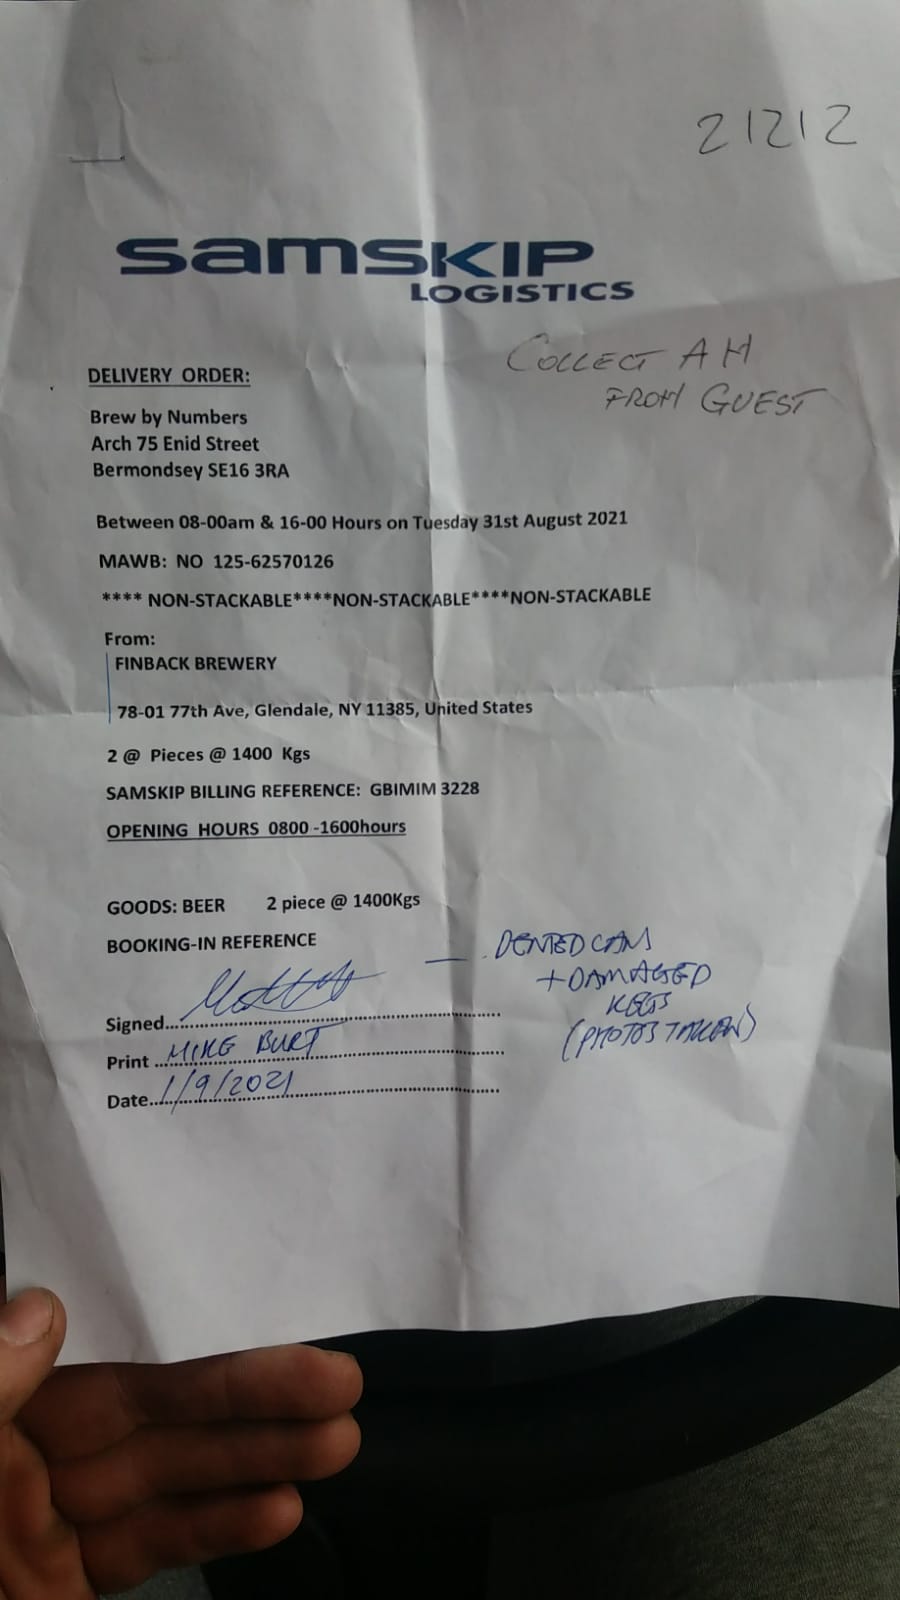 21212
SAMSKIP
LOGISTICS
COLLECT AM
FROM GUEST
DELIVERY ORDER:
Brew by Numbers
Arch 75 Enid Street
Bermondsey SE16 3RA
Between 08-00am & 16-00 Hours on Tuesday 31st August 2021
MAWB: NO 125-62570126
**** NON-STACKABLE****NON-STACKABLE****NON-STACKABLE
From:
FINBACK BREWERY
78-01 77th Ave, Glendale, NY 11385, United States
2 @ Pieces @ 1400 Kgs
SAMSKIP BILLING REFERENCE: GBIMIM 3228
OPENING HOURS 0800 -1600hours
GOODS: BEER 2 piece @ 1400Kgs
BOOKING-IN REFERENCE
— DENTED CANS
+ DAMAGED
KEGS
(PHOTOS TAKEN)
Signed....
Print ... MIKE BURT
Date.. 1/9/2021